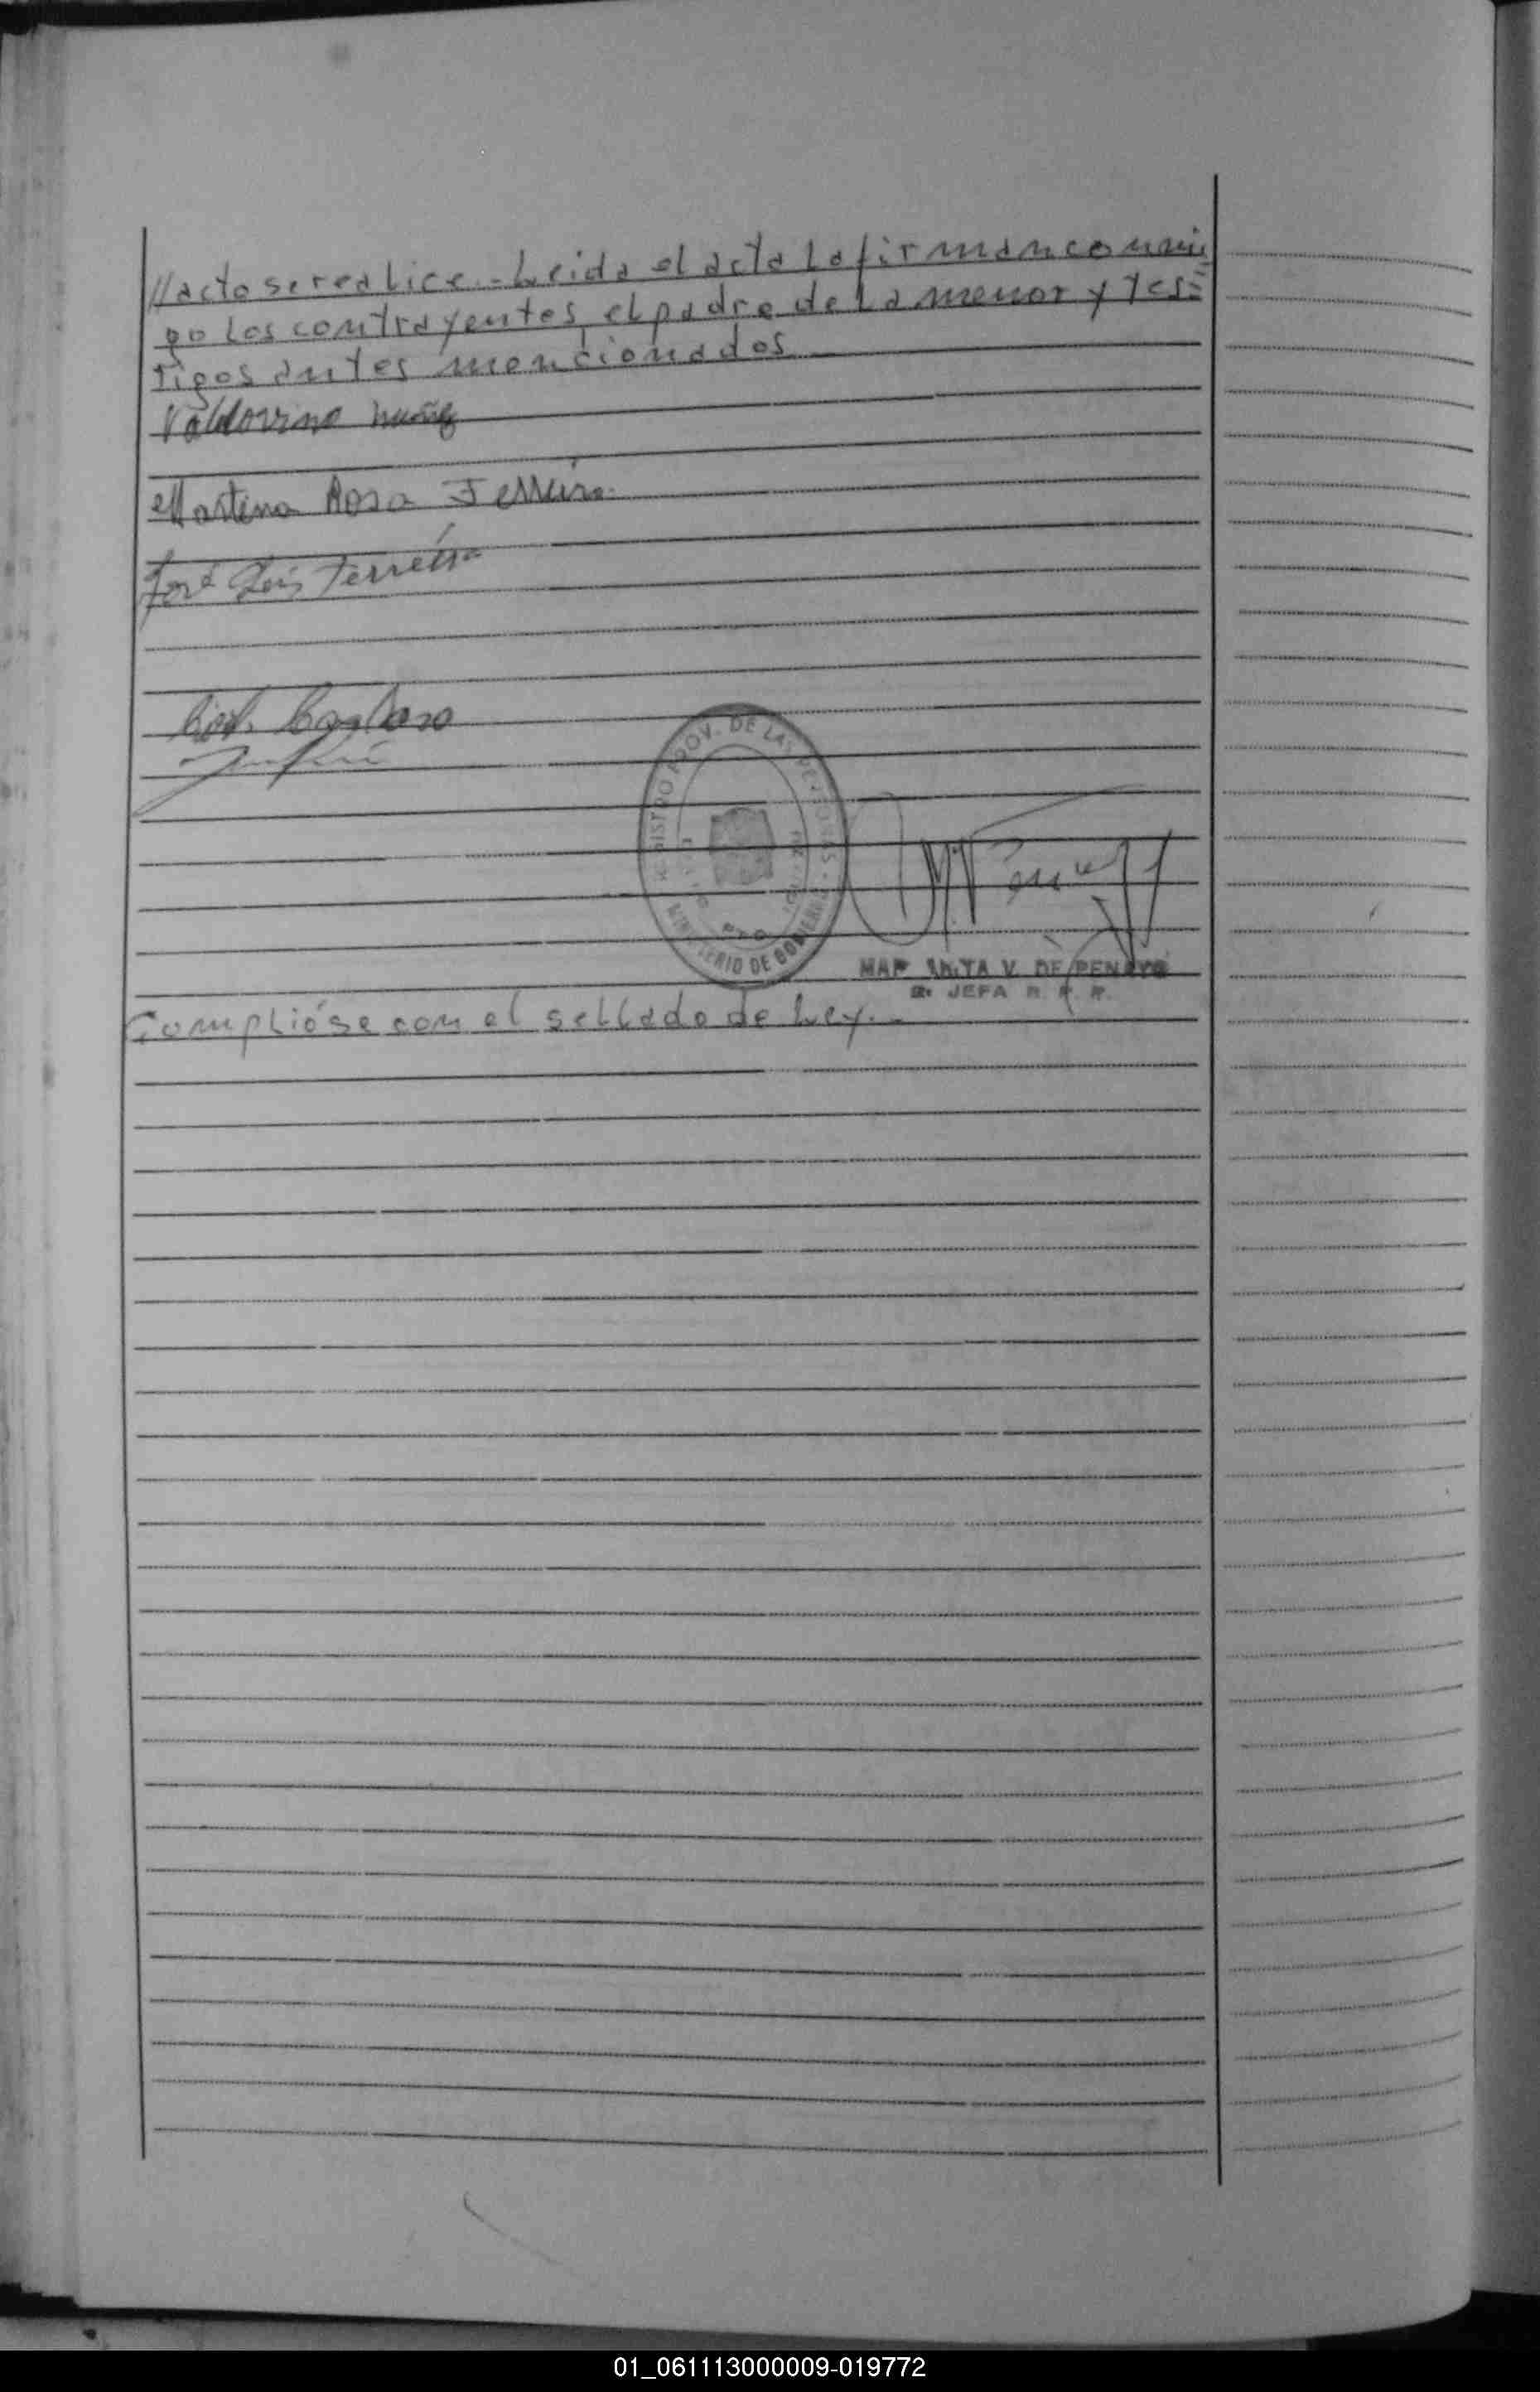 //acto se realice.- Leida el acta la firman conmi=
go los contrayentes, el padre de la menor y tes=
tigos antes mencionados
Valdovino Nuñez
Martina Rosa Ferreira
José Luis Ferreira
REGISTRO PROV. DE LAS PERSONAS
MINISTERIO DE GOBIERNO
V. DE PENAYO
JEFA R. P. P.
Cumplióse con el sellado de Ley.-
01_061113000009-019772